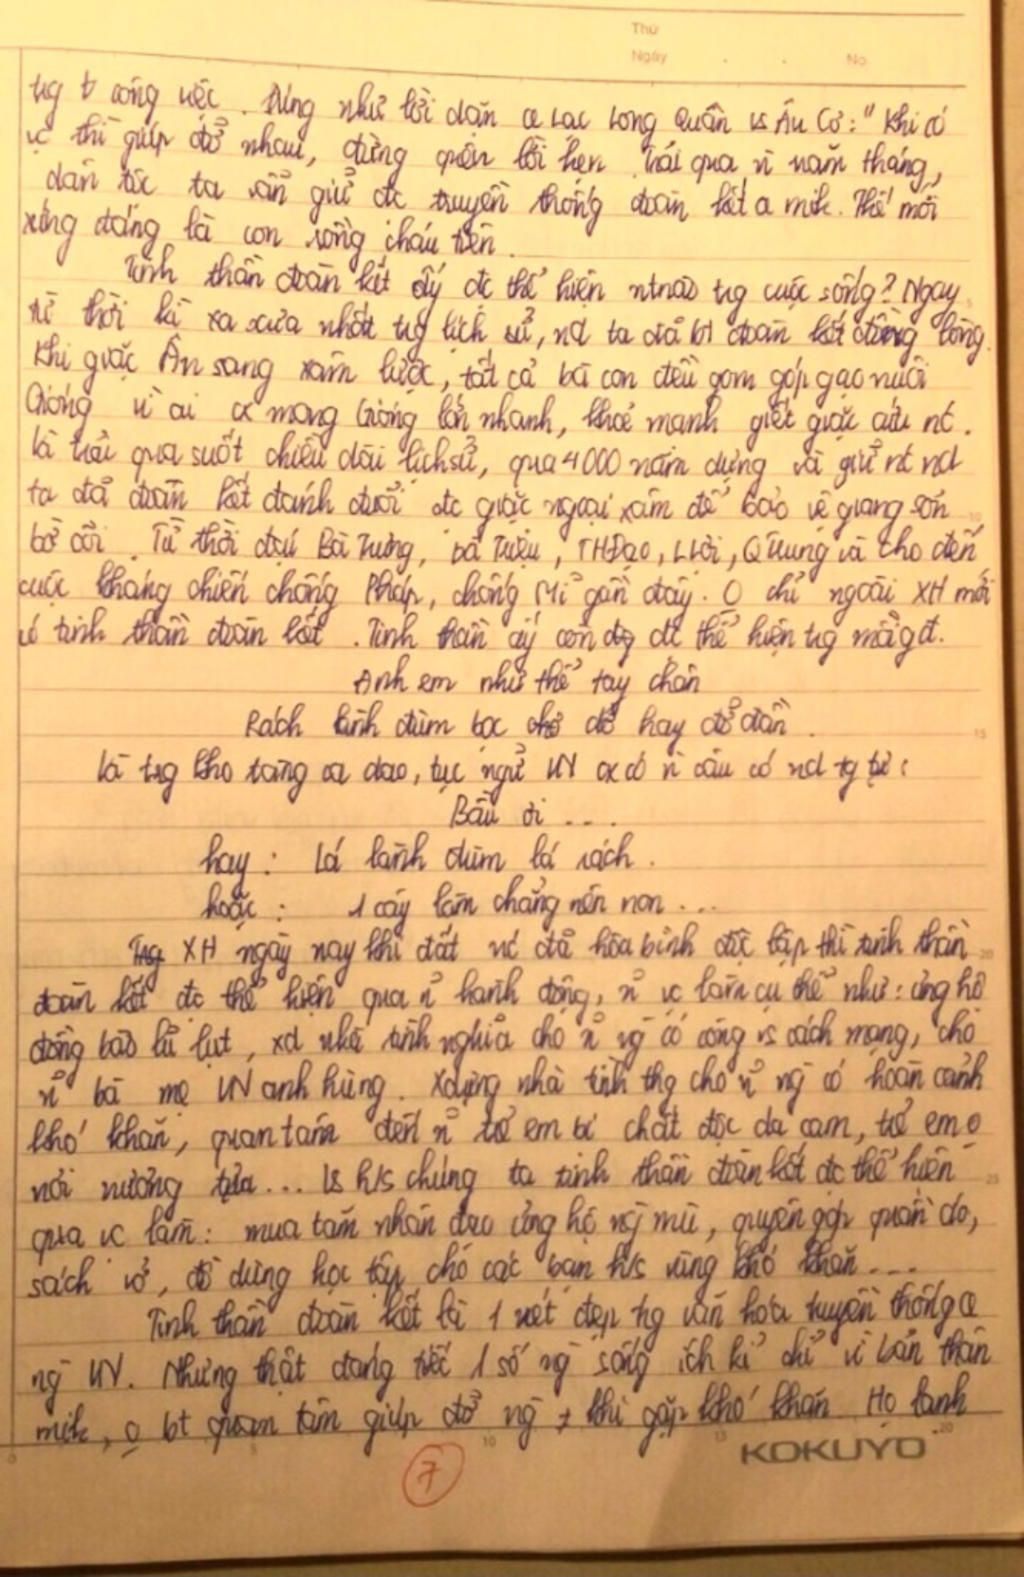 Thứ
Ngày . . No
trg công việc. Đúng như lời dặn Lạc Long Quân vs Âu Cơ: "Khi có
vc thì giúp đỡ nhau, đừng quên lời hẹn. Trải qua n~ năm tháng,
dân tộc ta vẫn giữ đc truyền thống đoàn kết a mik. Thế mới
xứng đáng là con rồng cháu tiên.
Tinh thần đoàn kết ấy đc thể hiện ntnào trg cuộc sống? Ngay
từ thời kì xa xưa nhất trg lịch sử, nd ta đã bt đoàn kết đồng lòng.
Khi giặc Ân sang xâm lược, tất cả bà con đều gom góp gạo nuôi
Gióng vì ai cx mong Gióng lớn nhanh, khoẻ mạnh giết giặc cứu nc.
Và trải qua suốt chiều dài lịch sử, qua 4000 năm dựng và giữ nc nd
ta đã đoàn kết đánh đuổi đc giặc ngoại xâm để bảo vệ giang sơn
bờ cõi. Từ thời đại Bà Trưng, bà Triệu, THĐạo, LLợi, QTrung và cho đến
cuộc kháng chiến chống Pháp, chống Mĩ gần đây. O chỉ ngoài XH mới
có tinh thần đoàn kết. Tinh thần ấy còn đc thể hiện trg mỗi gđ.
Anh em như thể tay chân
Rách lành đùm bọc dở hay đỡ đần.
Và trg kho tàng ca dao, tục ngữ VN cx có n~ câu có nd tg tự:
Bầu ơi ...
hay: Lá lành đùm lá rách.
hoặc: 1 cây làm chẳng nên non ...
Trg XH ngày nay khi đất nc đã hòa bình độc lập thì tinh thần
đoàn kết đc thể hiện qua n~ hành động, n~ vc làm cụ thể như: ủng hộ
đồng bào lũ lụt, xd nhà tình nghĩa cho n~ ng` có công vs cách mạng, cho
n~ bà mẹ VN anh hùng. Xdựng nhà tình thg cho n~ ng` có hoàn cảnh
khó khăn, quan tâm đến n~ trẻ em bị chất độc da cam, trẻ em o
nơi nương tựa... Vs h/s chúng ta tinh thần đoàn kết đc thể hiện
qua vc làm: mua tăm nhân đạo ủng hộ ng` mù, quyên góp quần áo,
sách vở, đồ dùng học tập cho các bạn h/s vùng khó khăn...
Tinh thần đoàn kết là 1 nét đẹp trg văn hóa truyền thống
ng` VN. Nhưng thật đáng tiếc 1 số ng` sống ích kỉ chỉ vì bản thân
mik, o bt quan tâm giúp đỡ ng` ≠ khi gặp khó khăn. Họ lanh
7
KOKUYO